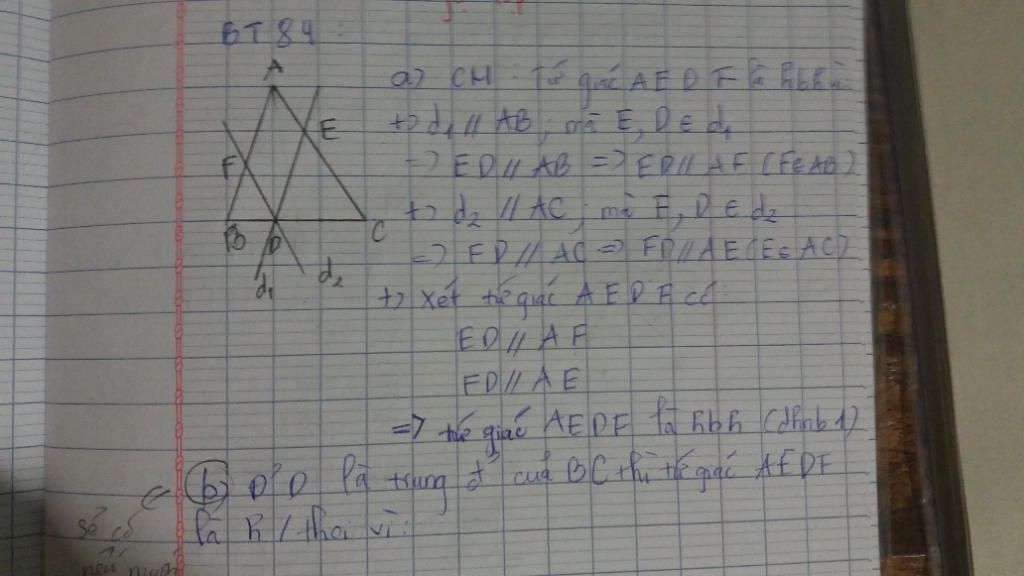 BT 84:
A
E
F
B
D
C
d1
d2
a) CM: Tứ giác AEDF là hbh:
+) d1 // AB; mà E, D ∈ d1
=> ED // AB => ED // AF (F∈AB)
+) d2 // AC; mà F, D ∈ d2
=> FD // AC => FD // AE (E∈AC)
+) Xét tứ giác AEDF có:
ED // AF
FD // AE
=> tứ giác AEDF là hbh (dhnb1)
b) là trung đ' của BC thì tứ giác AEDF
là h/thoi vì: